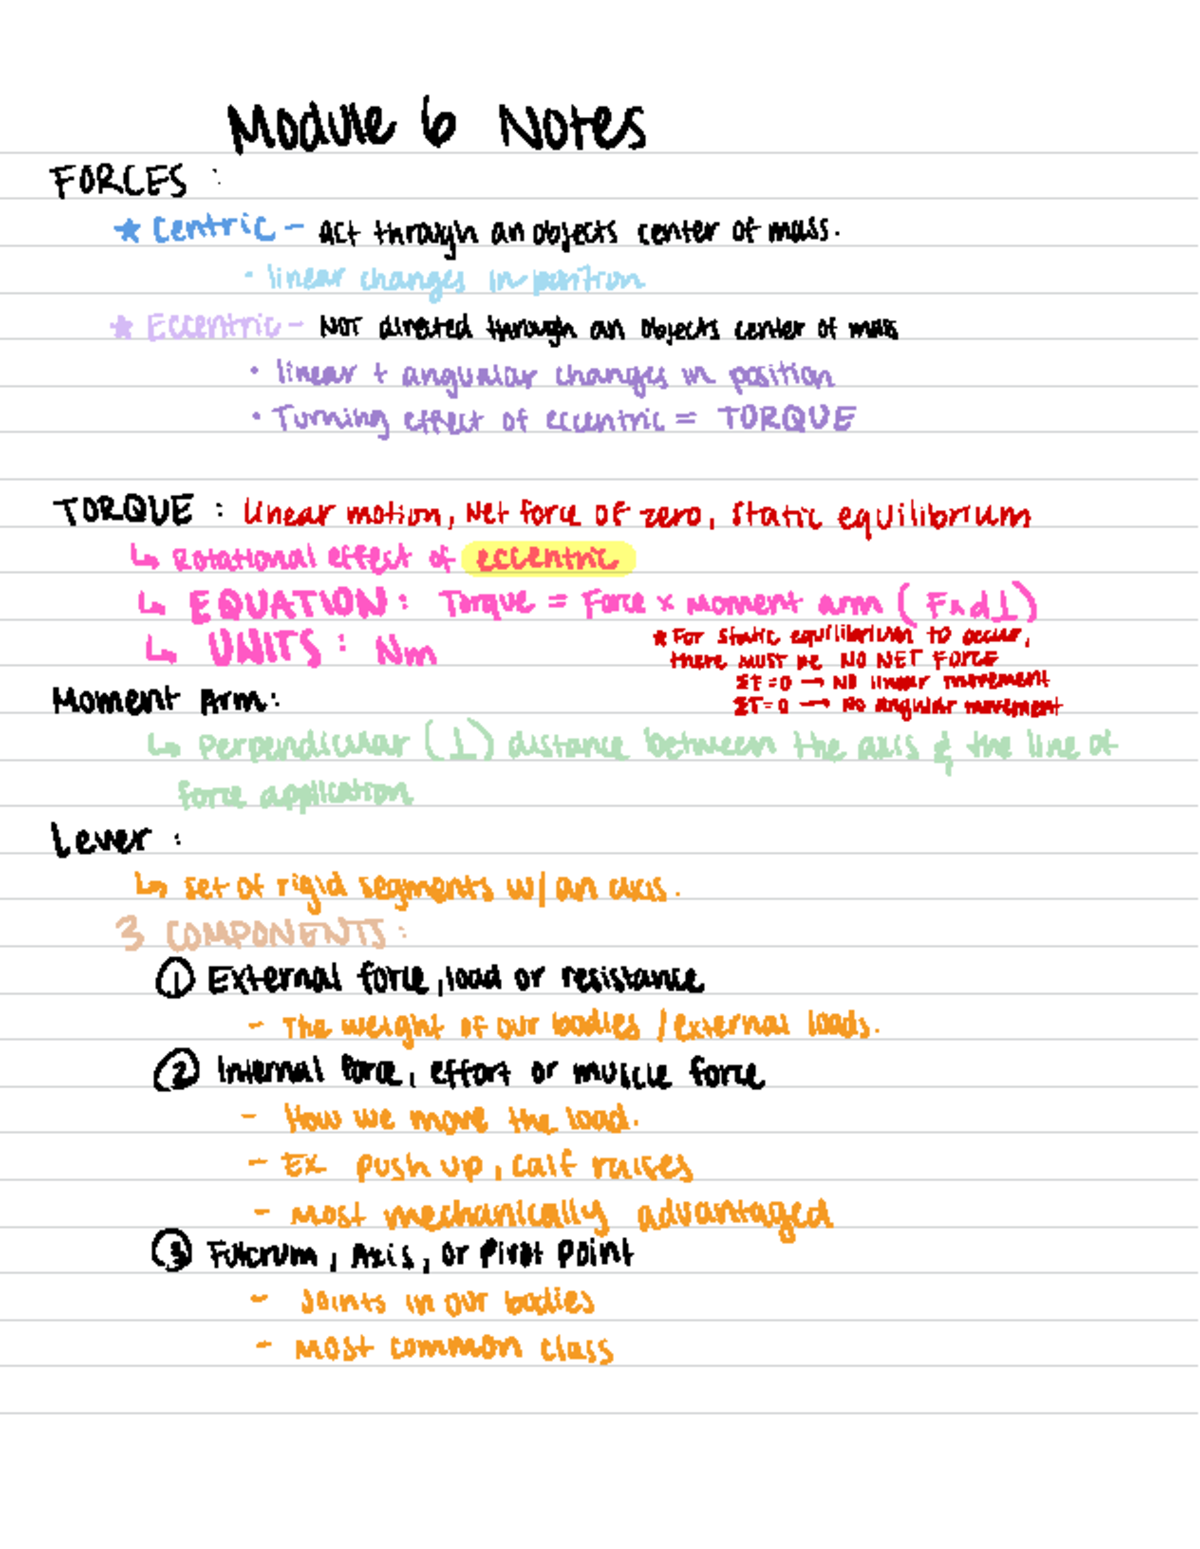 Module 6 Notes
FORCES :
★ Centric – act through an objects center of mass.
· linear changes in position
★ Eccentric – NOT directed through an objects center of mass
· linear + angular changes in position
· Turning effect of eccentric = TORQUE
TORQUE : Linear motion, Net force of zero, static equilibrium
↳ Rotational effect of eccentric
↳ EQUATION: Torque = Force × Moment arm ( F×d⊥)
↳ UNITS : Nm
★ For static equilibrium to occur,
there must be NO NET FORCE
ΣF=0 → No linear movement
ΣT=0 → No angular movement
Moment Arm:
↳ Perpendicular (⊥) distance between the axis & the line of
force application
Lever :
↳ set of rigid segments w/ an axis.
3 COMPONENTS:
① External force, load or resistance
– The weight of our bodies / external loads.
② Internal force, effort or muscle force
– How we move the load.
– Ex push up, calf raises
– Most mechanically advantaged
③ Fulcrum, Axis, or Pivot Point
– Joints in our bodies
– Most common class